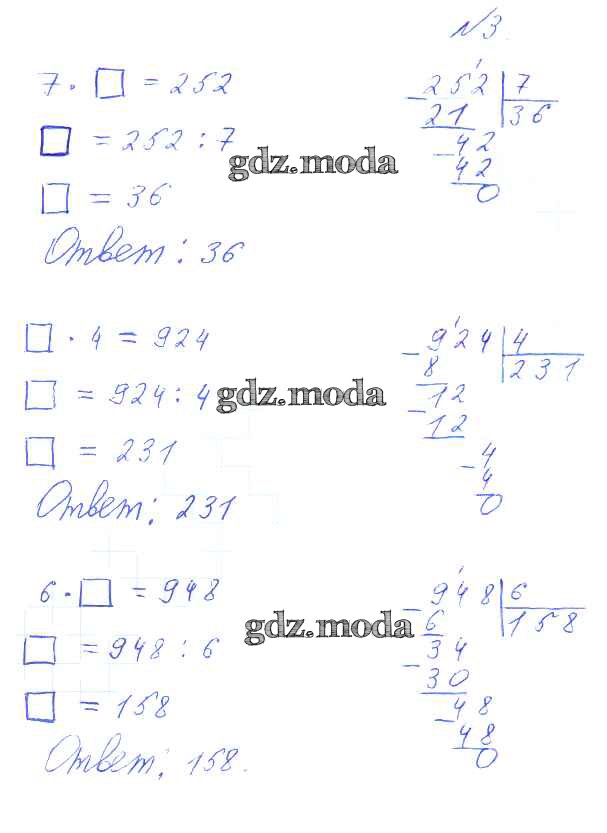 №3.
7 · □ = 252
□ = 252 : 7
□ = 36
Ответ: 36
252 | 7
21 | 36
42
42
0
gdz.moda
□ · 4 = 924
□ = 924 : 4
□ = 231
Ответ: 231
924 | 4
8 | 231
12
12
4
4
0
gdz.moda
6 · □ = 948
□ = 948 : 6
□ = 158
Ответ: 158.
948 | 6
6 | 158
34
30
48
48
0
gdz.moda